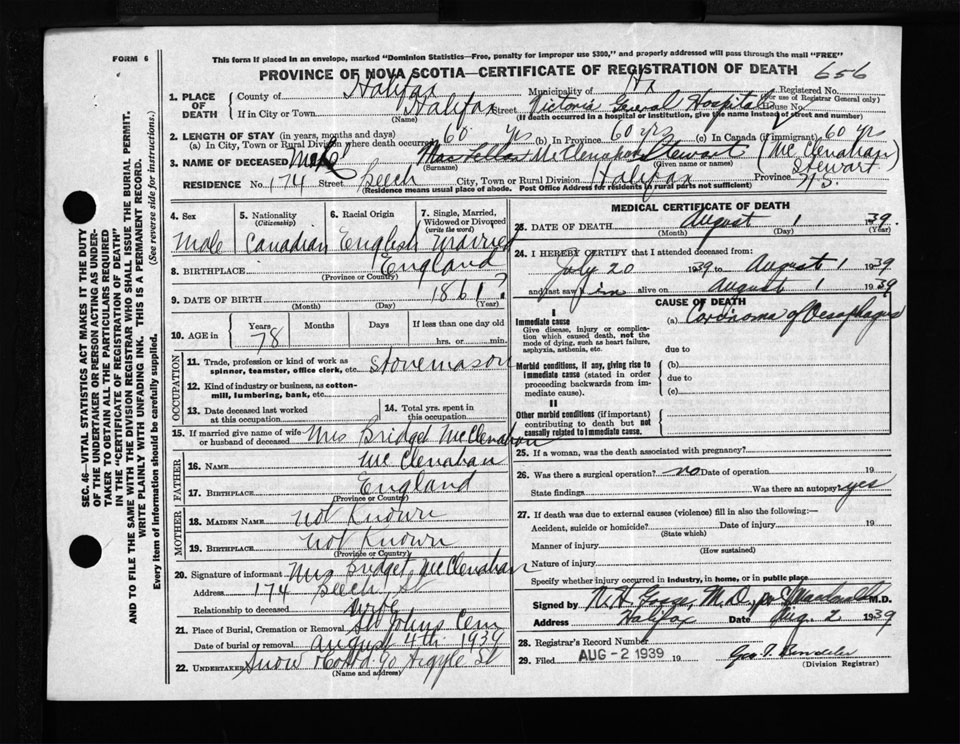 FORM 6
This form if placed in an envelope, marked "Dominion Statistics—Free, penalty for improper use $300," and properly addressed will pass through the mail "FREE"
PROVINCE OF NOVA SCOTIA—CERTIFICATE OF REGISTRATION OF DEATH 656
1. PLACE OF DEATH
County of Halifax Municipality of Hx Registered No.
(For use of Registrar General only)
If in City or Town Halifax Street Victoria General Hospital House No.
(Name) (If death occurred in a hospital or institution, give the name instead of street and number)
2. LENGTH OF STAY (in years, months and days)
(a) In City, Town or Rural Division where death occurred 60 yrs (b) In Province 60 yrs (c) In Canada (if immigrant) 60 yrs
3. NAME OF DECEASED McClenahan Stewart (McClenahan) Stewart
(Surname) (Given name or names)
RESIDENCE No. 174 Street Beech City, Town or Rural Division Halifax Province N.S.
(Residence means usual place of abode. Post Office Address for residents in rural parts not sufficient)
4. Sex
Male
5. Nationality (Citizenship)
Canadian
6. Racial Origin
English
7. Single, Married, Widowed or Divorced (write the word)
Married
8. BIRTHPLACE England
(Province or Country)
9. DATE OF BIRTH 1861?
(Month) (Day) (Year)
10. AGE in Years Months Days If less than one day old
78 hrs. or min.
OCCUPATION
11. Trade, profession or kind of work as spinner, teamster, office clerk, etc. Stonemason
12. Kind of industry or business, as cotton-mill, lumbering, bank, etc.
13. Date deceased last worked at this occupation
14. Total yrs. spent in this occupation
15. If married give name of wife or husband of deceased Mrs Bridget McClenahan
FATHER
16. NAME McClenahan
17. BIRTHPLACE England
(Province or Country)
MOTHER
18. MAIDEN NAME Not Known
19. BIRTHPLACE Not Known
(Province or Country)
20. Signature of informant Mrs Bridget McClenahan
Address 174 Beech St
Relationship to deceased Wife
21. Place of Burial, Cremation or Removal St Johns Cem
Date of burial or removal August 4th 1939
22. UNDERTAKER Snow & Co Ltd 90 Argyle St
(Name and address)
MEDICAL CERTIFICATE OF DEATH
23. DATE OF DEATH August 1 1939
(Month) (Day) (Year)
24. I HEREBY CERTIFY that I attended deceased from:
July 20 1939 to August 1 1939
and last saw him alive on August 1 1939
CAUSE OF DEATH
I
Immediate cause
Give disease, injury or complication which caused death, not the mode of dying, such as heart failure, asphyxia, asthenia, etc.
(a) Carcinoma of Oesophagus
due to
Morbid conditions, if any, giving rise to immediate cause (stated in order proceeding backwards from immediate cause).
(b)
due to
(c)
II
Other morbid conditions (if important) contributing to death but not causally related to immediate cause.
25. If a woman, was the death associated with pregnancy?
26. Was there a surgical operation? no Date of operation 19
State findings Was there an autopsy? yes
27. If death was due to external causes (violence) fill in also the following:
Accident, suicide or homicide? Date of injury 19
(State which)
Manner of injury
(How sustained)
Nature of injury
Specify whether injury occurred in industry, in home, or in public place
Signed by M.D.
Address Halifax Date Aug. 2 1939
28. Registrar's Record Number
29. Filed AUG -2 1939 19
(Division Registrar)
SEC. 46—VITAL STATISTICS ACT MAKES IT THE DUTY
OF THE UNDERTAKER OR PERSON ACTING AS UNDER-
TAKER TO OBTAIN ALL THE PARTICULARS REQUIRED
IN THE "CERTIFICATE OF REGISTRATION OF DEATH"
AND TO FILE THE SAME WITH THE DIVISION REGISTRAR WHO SHALL ISSUE THE BURIAL PERMIT.
WRITE PLAINLY WITH UNFADING INK. THIS IS A PERMANENT RECORD.
Every item of information should be carefully supplied. (See reverse side for instructions.)